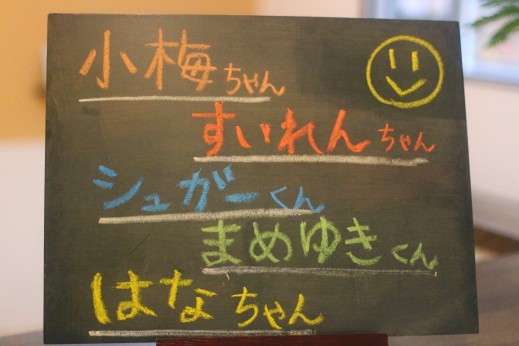 小梅ちゃん
すいれんちゃん
シュガーくん
まめゆきくん
はなちゃん